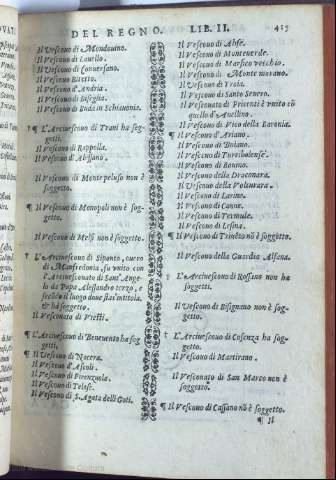 DEL REGNO. LIB. II. 417
Il Vescouo di
Il Vescouo di Lauello.
Il Vescouo di Conuersano.
Il Vescouo Bitetto.
Il Vescouo d'Andria.
Il Vescouo di
Il Vescouo di in Schiauonia.
† ¶ L'Arciuescouo di Trani ha sog
getti.
Il Vescouo di Rapolla.
Il Vescouo d'
Il Vescouo di Monte peluso non è
soggetto.
¶ Il Vescouo di Monopoli non è sog-
getto.
Il Vescouo di Melfi non è soggetto.
† ¶ L'Arciuescouo di Siponto, ouero
di Manfredonia, fu vnito con
l'Arciuescouato di Sant'Ange
lo da Papa Alessandro terzo, e
secondo il luogo doue sta s'intitola,
& ha soggetto.
Il Vescouato di Viesti.
¶ L'Arciuescouo di Beneuento ha sog
getti.
¶ Il Vescouo di Nocera.
Il Vescouo d'Ascoli.
Il Vescouo di Firenzuola.
Il Vescouo di Telese.
Il Vescouo di S. Agata delli Goti.
Il Vescouo di Alife.
Il Vescouo di Monteuerde.
Il Vescouo di Marsico vecchio.
Il Vescouo di Monte marano.
Il Vescouo di Troia.
Il Vescouo di Santo Seuero.
Il Vescouato di è vnito cõ
quello d'Auellino.
Il Vescouo di Vico della Baronia.
¶ Il Vescouo d'Ariano.
Il Vescouo di
Il Vescouo di
Il Vescouo di Bouino.
Il Vescouo della Draconara.
Il Vescouo della Volturara.
Il Vescouo di Larino.
Il Vescouo di
Il Vescouo di Termule.
Il Vescouo di Lesina.
¶ Il Vescouo di Triuẽto nõ è soggetto.
Il Vescouo della Guardia Alfana.
† ¶ L'Arciuescouo di Rossano non ha
soggetti.
Il Vescouo di Bisignano non è sog-
getto.
† L'Arciuescouo di Cosenza ha sog-
getto.
Il Vescouo di Martirano.
Il Vescouato di San Marco non è
soggetto.
¶ Il Vescouo di Cassano nõ è soggetto.
¶ Il